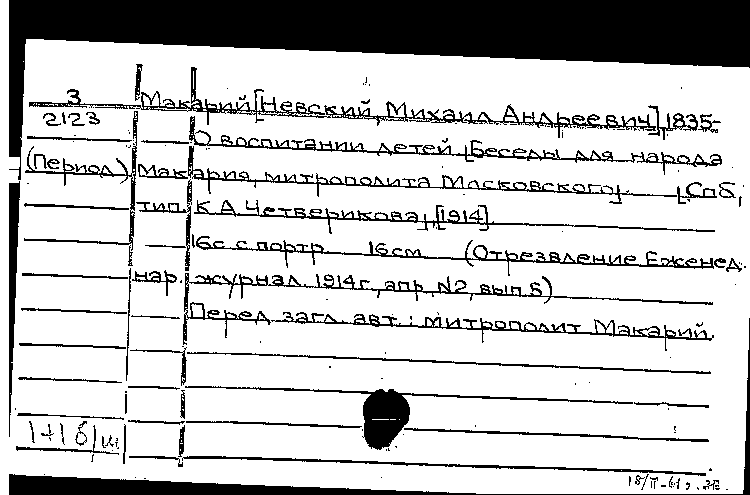 З
2123
(Период)
Макарий [Невский, Михаил Андреевич], 1835-
О воспитании детей. [Беседы для народа
Макария, митрополита Московского]. [Спб.,
тип. К.А. Четверикова], [1914].
16с. с портр. 16см. (Отрезвление. Еженед.
нар. журнал. 1914г., апр. N2, вып. 5)
Перед загл. авт.: митрополит Макарий.
1+1 б/ш